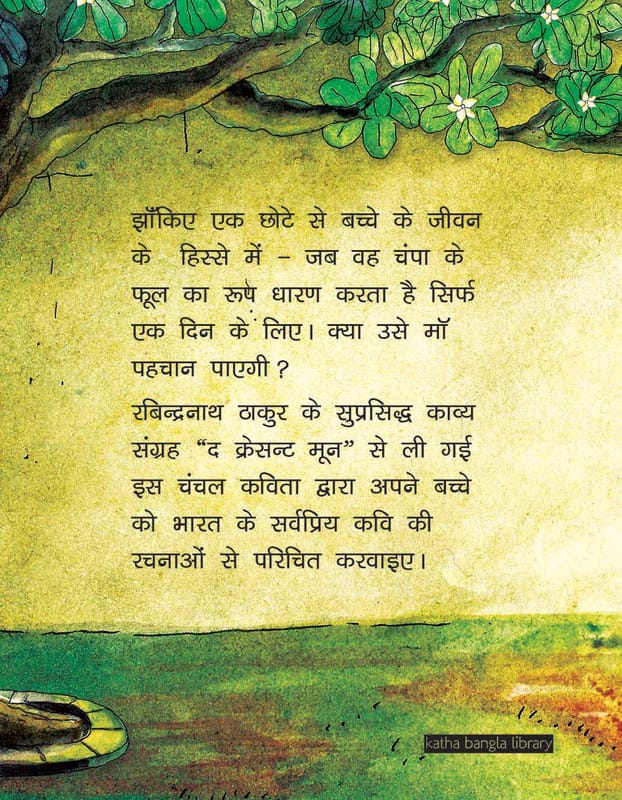 झाँकिए एक छोटे से बच्चे के जीवन
के हिस्से में – जब वह चंपा के
फूल का रूप धारण करता है सिर्फ
एक दिन के लिए। क्या उसे माँ
पहचान पाएगी?
रबिन्द्रनाथ ठाकुर के सुप्रसिद्ध काव्य
संग्रह “द क्रेसन्ट मून” से ली गई
इस चंचल कविता द्वारा अपने बच्चे
को भारत के सर्वप्रिय कवि की
रचनाओं से परिचित करवाइए।
katha bangla library